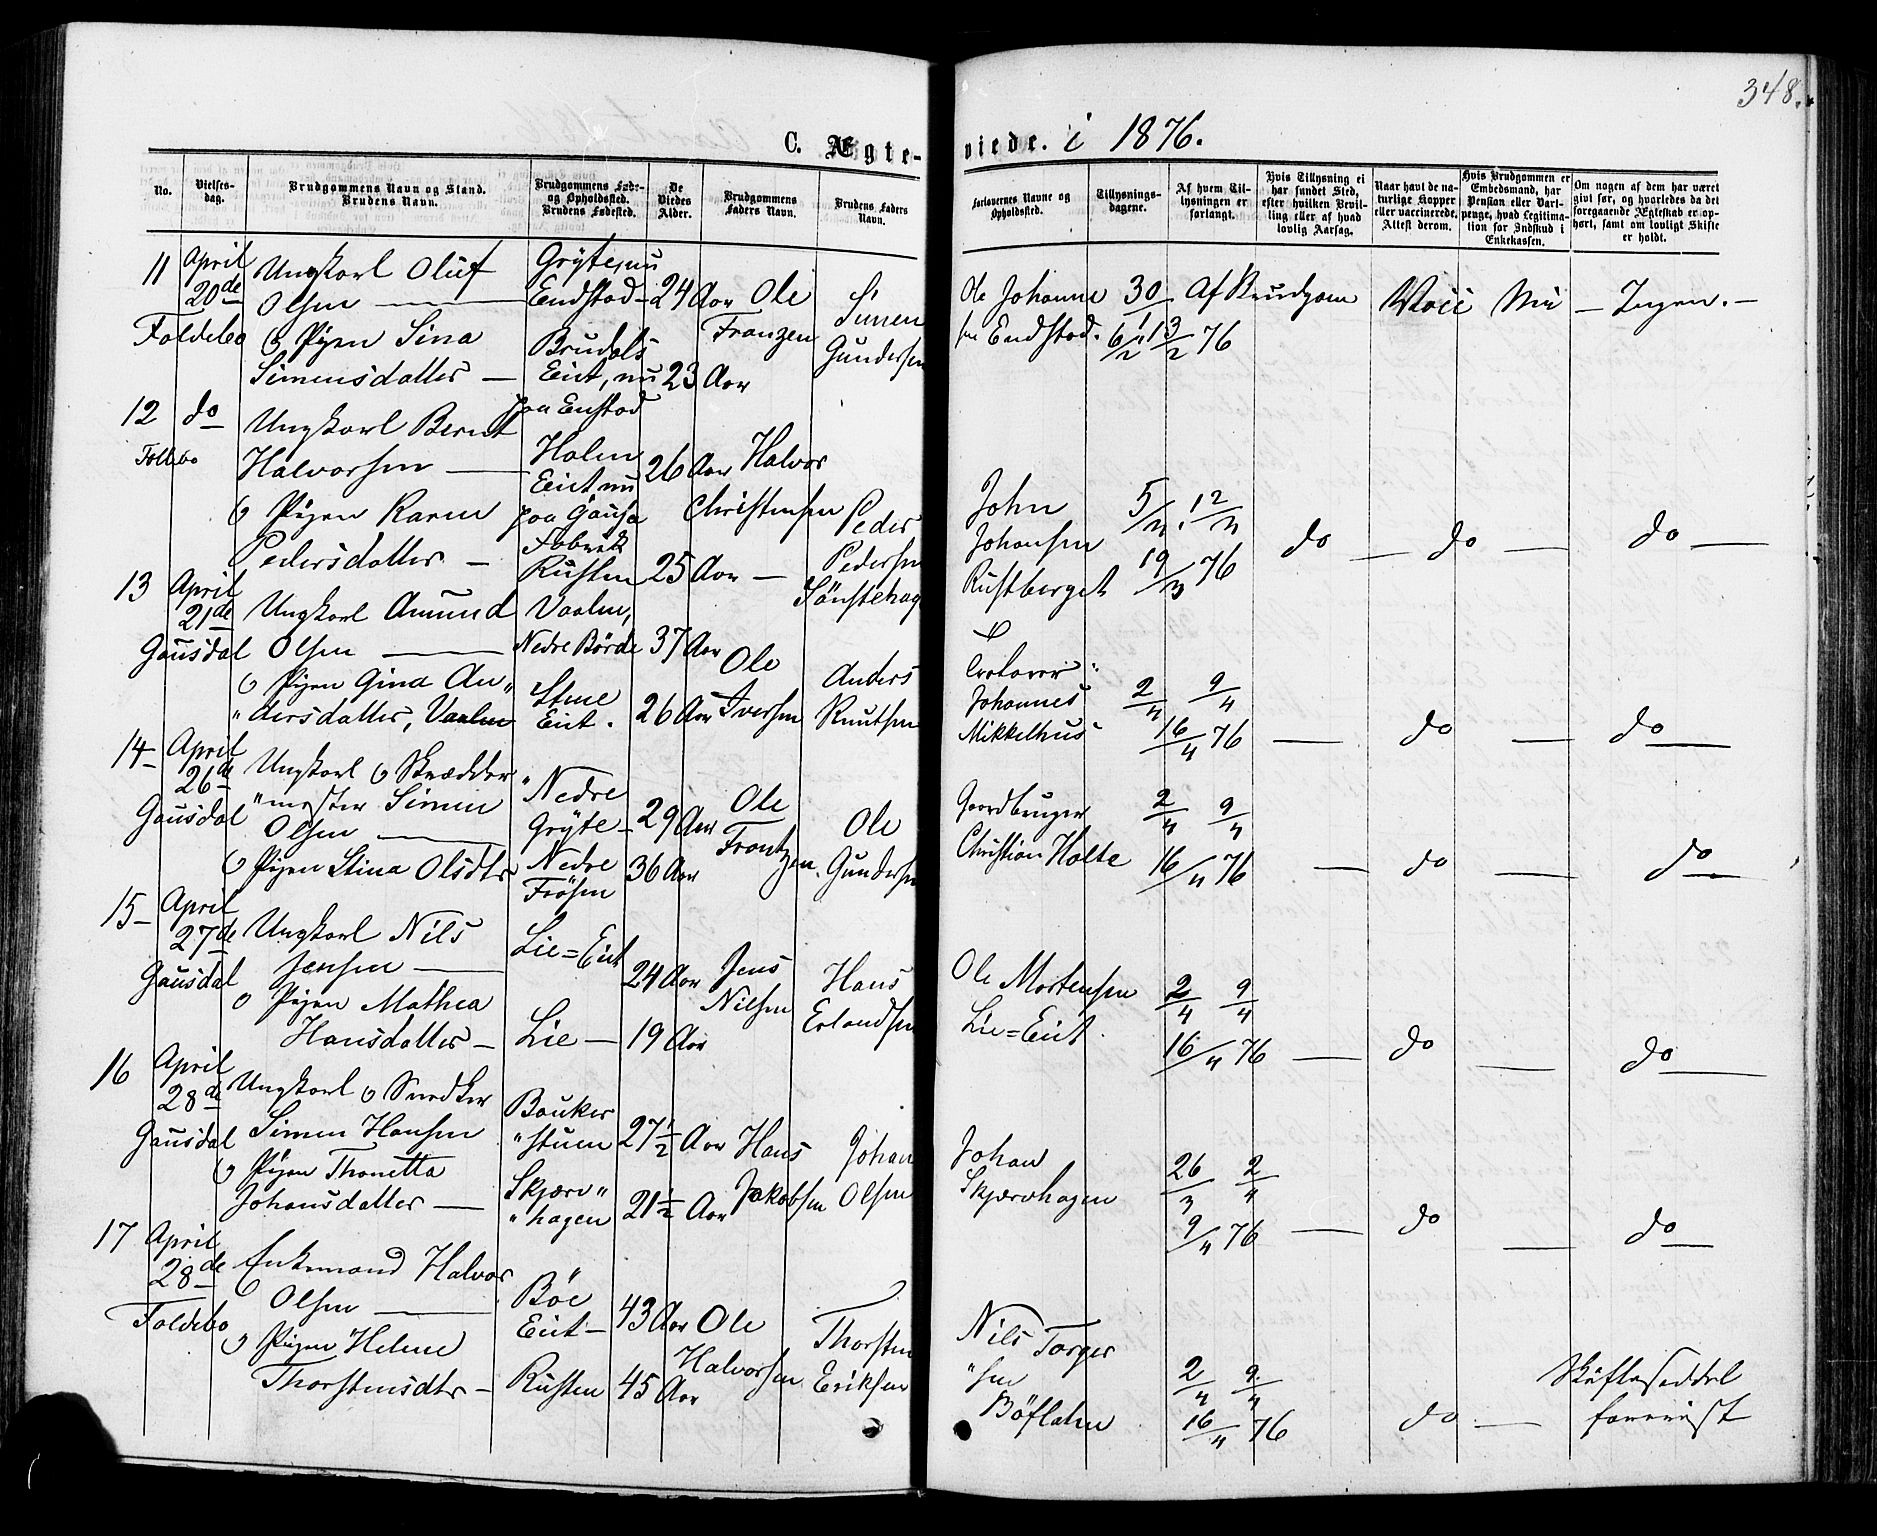 348.
C. Ægte-
viede. i 1876.
No.
Vielses-
dag.
Brudgommens Navn og Stand.
Brudens Navn.
Brudgommens Føde-
og Opholdssted.
Brudens Fødested.
De
Viedes
Alder.
Brudgommens
Faders Navn.
Brudens Faders
Navn.
Forlovernes Navne og
Opholdssted.
Tillysnings-
dagene.
Af hvem Til-
lysningen er
forlangt.
Hvis Tillysning ei
har fundet Sted,
efter hvilken Bevil-
ling eller af hvad
lovlig Aarsag.
Naar havt de na-
turlige Kopper
eller vaccinerede.
Attest derom.
Hvis Brudgommen er
Embedsmand, har
Pension eller Vart-
penge, hvad Legitima-
tion for Indskud i
Enkekassen.
Om nogen af dem har været
givt før, og hvorledes da det
foregaaende Ægteskab er op-
hørt, samt om lovligt Skifte
er holdt.
11 April 20de Foldebo
Ungkarl Oluf
Olsen
o Pigen Sina
Simensdatter
Gryte, nu
Endstad
Brudals
Eiet, nu
paa Enstad
24 Aar
23 Aar
Ole
Franzen
Simen
Gundersen
Ole Johanne
sen Endstad.
30/1
6/2 13/2 76
Af Brudgom
Ingen.
12 do Follebo
Ungkarl Bernt
Halvorsen
o Pigen Karen
Pedersdatter
Holen
Eiet nu
paa Gausa
Fabrik
Rusten
26 Aar
25 Aar
Halvor
Christensen
Peder
Pedersen
Sönstehag
John
Johansen
Rustberget
5/3. 12/3
19/3 76
do
do
do
13 April 21de Gausdal
Ungkarl Amund
Olsen
o Pigen Gina An"
"dersdatter, Vaalen
Vaalen,
Nedre Börde
Stene
Eiet.
37 Aar
26 Aar
Ole
Iversen
Anders
Knutsen
Johannes
Mikkelhus
2/4 9/4
16/4 76
do
do
14 April 26de Gausdal
Ungkarl o Skrædder
"mester Simen
Olsen
o Pigen Stina Olsdtr
Nedre
Gryte
Nedre
Frösen
29 Aar
36 Aar
Ole
Frantzen.
Ole
Gundersen
Gaardbruger
Christian Holte
2/4 9/4
16/4 76
do
do
15 April 27de Gausdal
Ungkarl Nils
Jensen
o Pigen Mathea
Hansdatter
Lie=Eiet
Lie
24 Aar
19 Aar
Jens
Nilsen
Hans
Erlandsen
Ole Mortensen
Lie=Eiet.
2/4 9/4
16/4 76
do
do
16 April 28de Gausdal
Ungkarl o Snedker
Simen Hansen
o Pigen Thonetta
Johansdatter
Bauker
"stuen
Skjærv"
"hagen
27½ Aar
21½ Aar
Hans
Jakobsen
Johan
Olsen
Johan
Skjærvhagen
26/3 2/4
9/4 76
do
do
17 April 28de Foldebo
Enkemand Halvor
Olsen
o Pigen Helene
Thorstensdtr
Böe
Eiet
Rusten
43 Aar
45 Aar
Ole
Halvorsen
Thorsten
Eriksen
Nils Torger
"sen
Böflaten
2/4 9/4
16/4 76
do
Skifteseddel
forevist